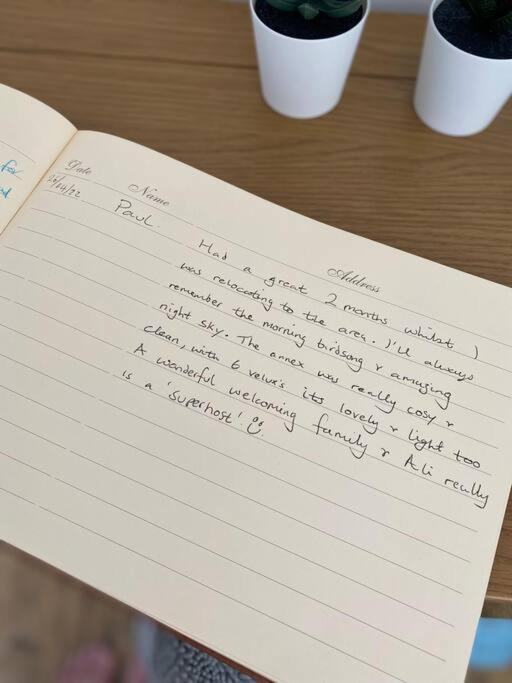 for
Date Name Address
Paul.
Had a great 2 months whilst I
was relocating to the area. I'll always
remember the morning birdsong & amazing
night sky. The annex was really cosy &
clean, with 6 velux's its lovely & light too
A wonderful welcoming family & Ali really
is a 'superhost'!